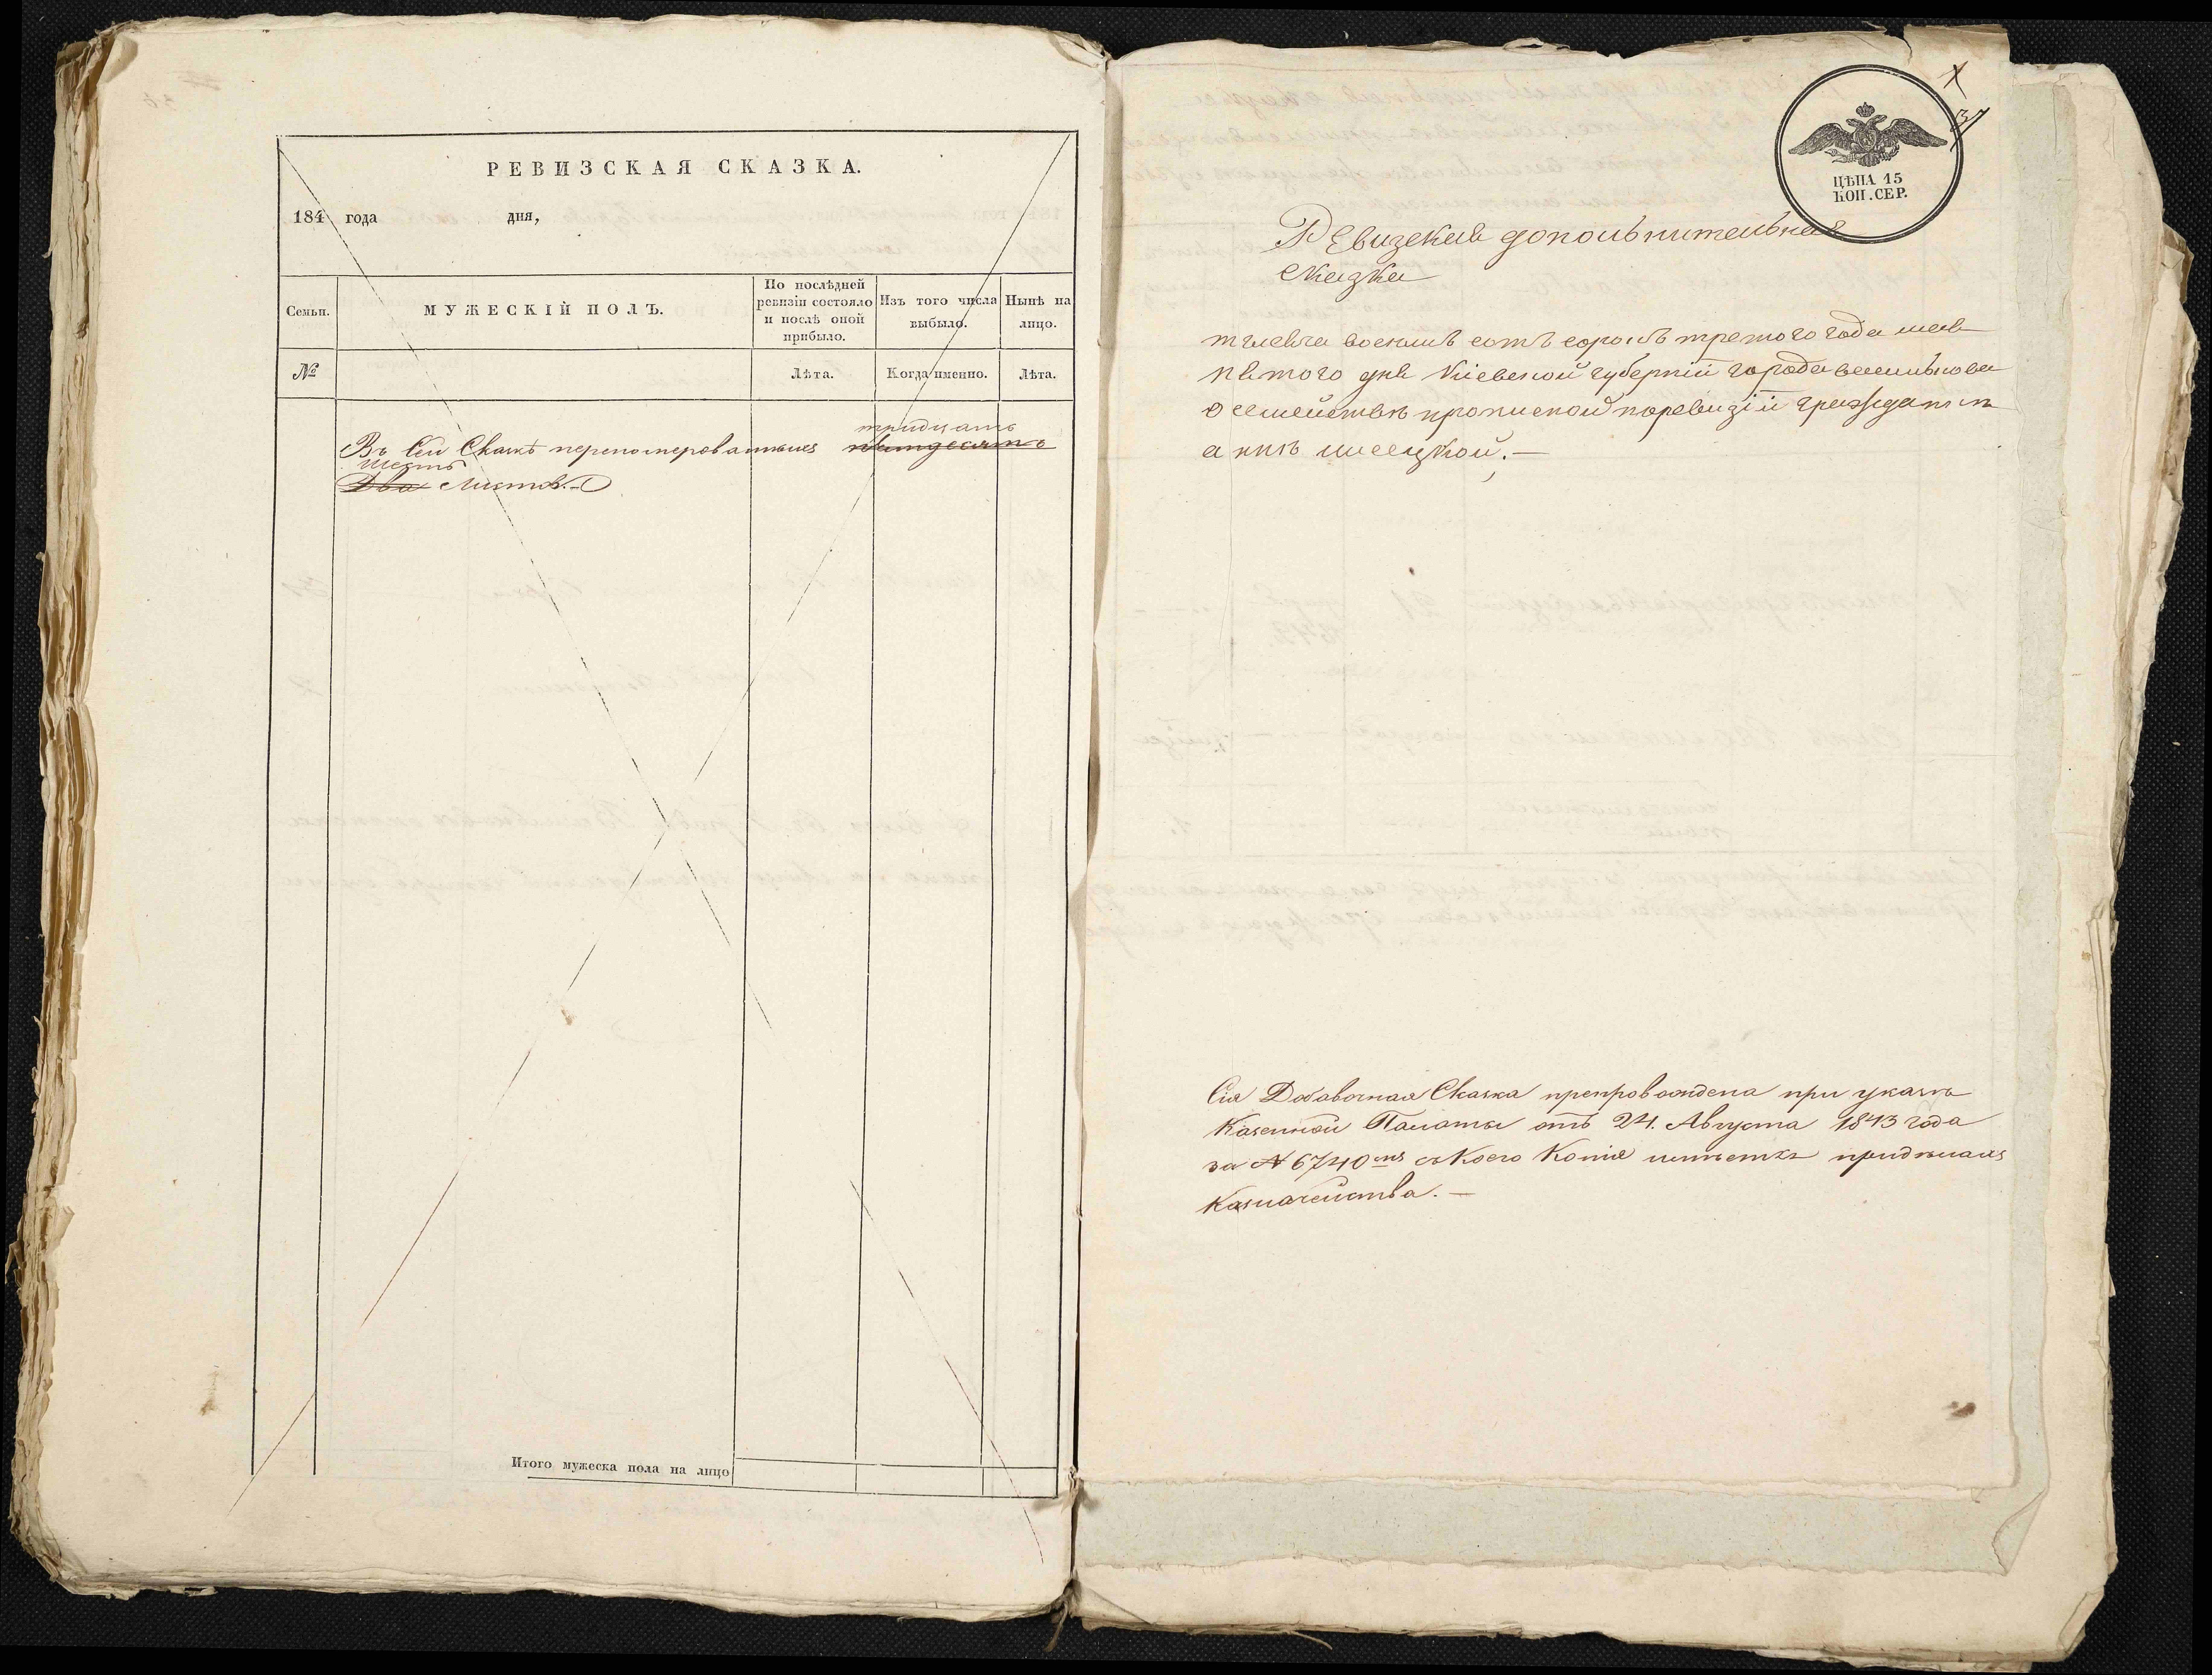 РЕВИЗСКАЯ СКАЗКА.
184 года дня,
Семьи.
МУЖЕСКІЙ ПОЛЪ.
По послѣдней
ревизіи состояло
и послѣ оной
прибыло.
Изъ того числа
выбыло.
Нынѣ на
лицо.
№
Лѣта.
Когда именно.
Лѣта.
тридцать
Въ сей Сказкѣ перономерованныхъ пятдесятъ
шесть
Два листов.
Итого мужеска пола на лицо
37
ЦѢНА 15
КОП. СЕР.
Ревизская допольнительная
сказка
тысевча восемь сотъ сорокъ третого года мая
пятого дня Кіевской губерніи города василькова
о семействѣ прописной поревизіи гражданин
Сія Добавочная Сказка препровождена при указѣ
Казенной Палаты отъ 24. Августа 1843 года
за № 6740мъ съ коего Копія имѣетъ при дѣлахъ
Казначейства. —